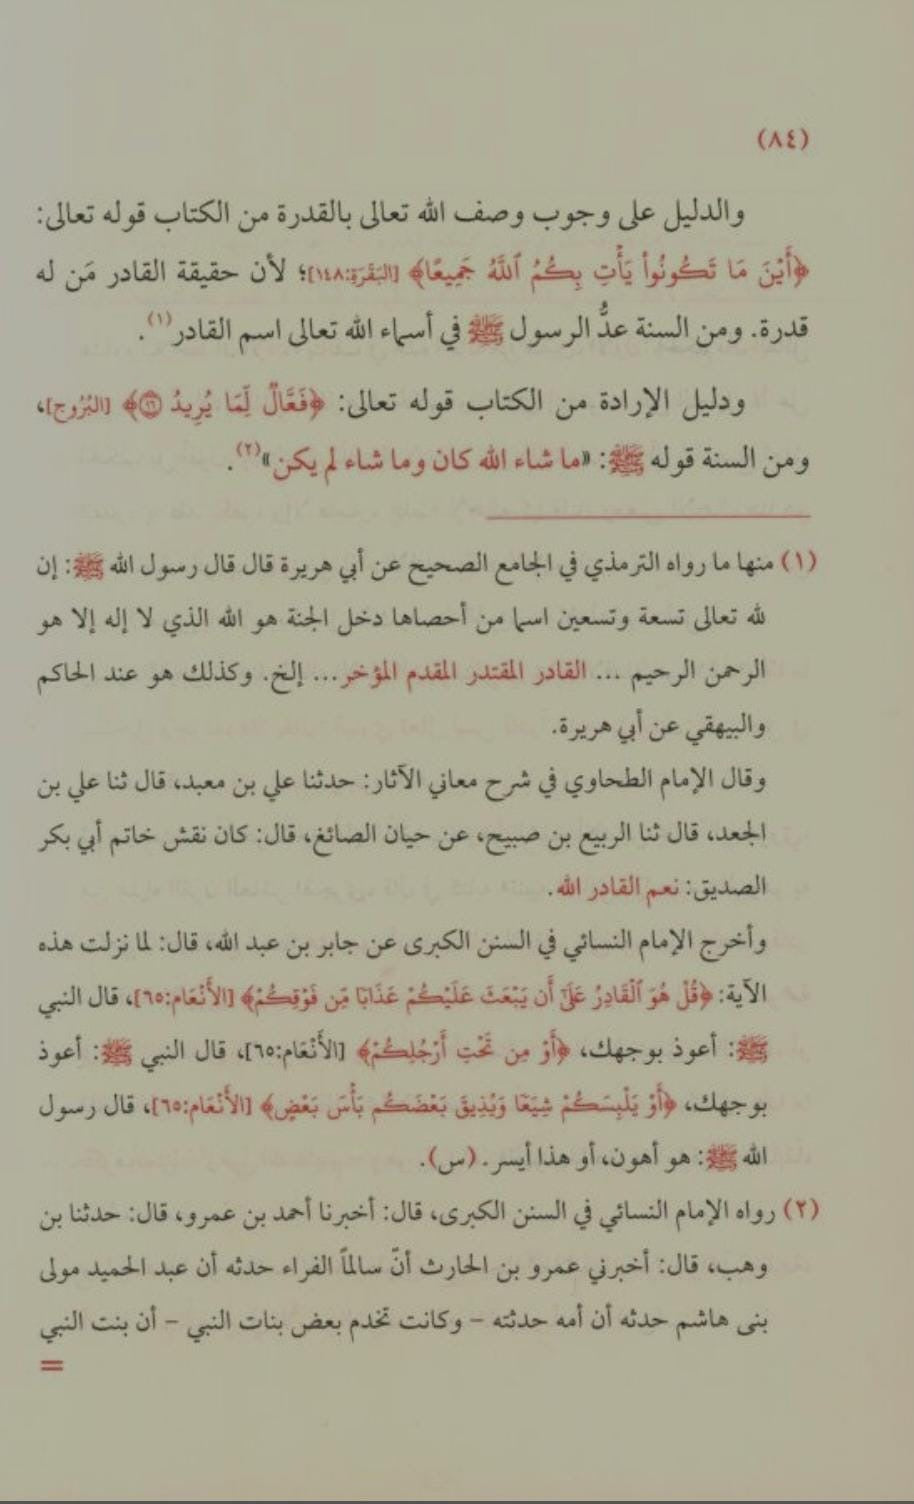 (٨٤)
والدليل على وجوب وصف الله تعالى بالقدرة من الكتاب قوله تعالى:
﴿أَيْنَ مَا تَكُونُوا۟ يَأْتِ بِكُمُ ٱللَّهُ جَمِيعًا﴾ [البَقَرَة:١٤٨]؛ لأن حقيقة القادر مَن له
قدرة. ومن السنة عدُّ الرسول ﷺ في أسماء الله تعالى اسم القادر(١).
ودليل الإرادة من الكتاب قوله تعالى: ﴿فَعَّالٌ لِّمَا يُرِيدُ ١٦﴾ [البُرُوج]،
ومن السنة قوله ﷺ: «ما شاء الله كان وما شاء لم يكن»(٢).
(١) منها ما رواه الترمذي في الجامع الصحيح عن أبي هريرة قال قال رسول الله ﷺ: إن
لله تعالى تسعة وتسعين اسما من أحصاها دخل الجنة هو الله الذي لا إله إلا هو
الرحمن الرحيم ... القادر المقتدر المقدم المؤخر... إلخ. وكذلك هو عند الحاكم
والبيهقي عن أبي هريرة.
وقال الإمام الطحاوي في شرح معاني الآثار: حدثنا علي بن معبد، قال ثنا علي بن
الجعد، قال ثنا الربيع بن صبيح، عن حيان الصائغ، قال: كان نقش خاتم أبي بكر
الصديق: نعم القادر الله.
وأخرج الإمام النسائي في السنن الكبرى عن جابر بن عبد الله، قال: لما نزلت هذه
الآية: ﴿قُلْ هُوَ ٱلْقَادِرُ عَلَىٰٓ أَن يَبْعَثَ عَلَيْكُمْ عَذَابًا مِّن فَوْقِكُمْ﴾ [الأَنْعَام:٦٥]، قال النبي
ﷺ: أعوذ بوجهك، ﴿أَوْ مِن تَحْتِ أَرْجُلِكُمْ﴾ [الأَنْعَام:٦٥]، قال النبي ﷺ: أعوذ
بوجهك، ﴿أَوْ يَلْبِسَكُمْ شِيَعًا وَيُذِيقَ بَعْضَكُم بَأْسَ بَعْضٍ﴾ [الأَنْعَام:٦٥]، قال رسول
الله ﷺ: هو أهون، أو هذا أيسر. (س).
(٢) رواه الإمام النسائي في السنن الكبرى، قال: أخبرنا أحمد بن عمرو، قال: حدثنا بن
وهب، قال: أخبرني عمرو بن الحارث أنّ سالماً الفراء حدثه أن عبد الحميد مولى
بنى هاشم حدثه أن أمه حدثته - وكانت تخدم بعض بنات النبي - أن بنت النبي
=